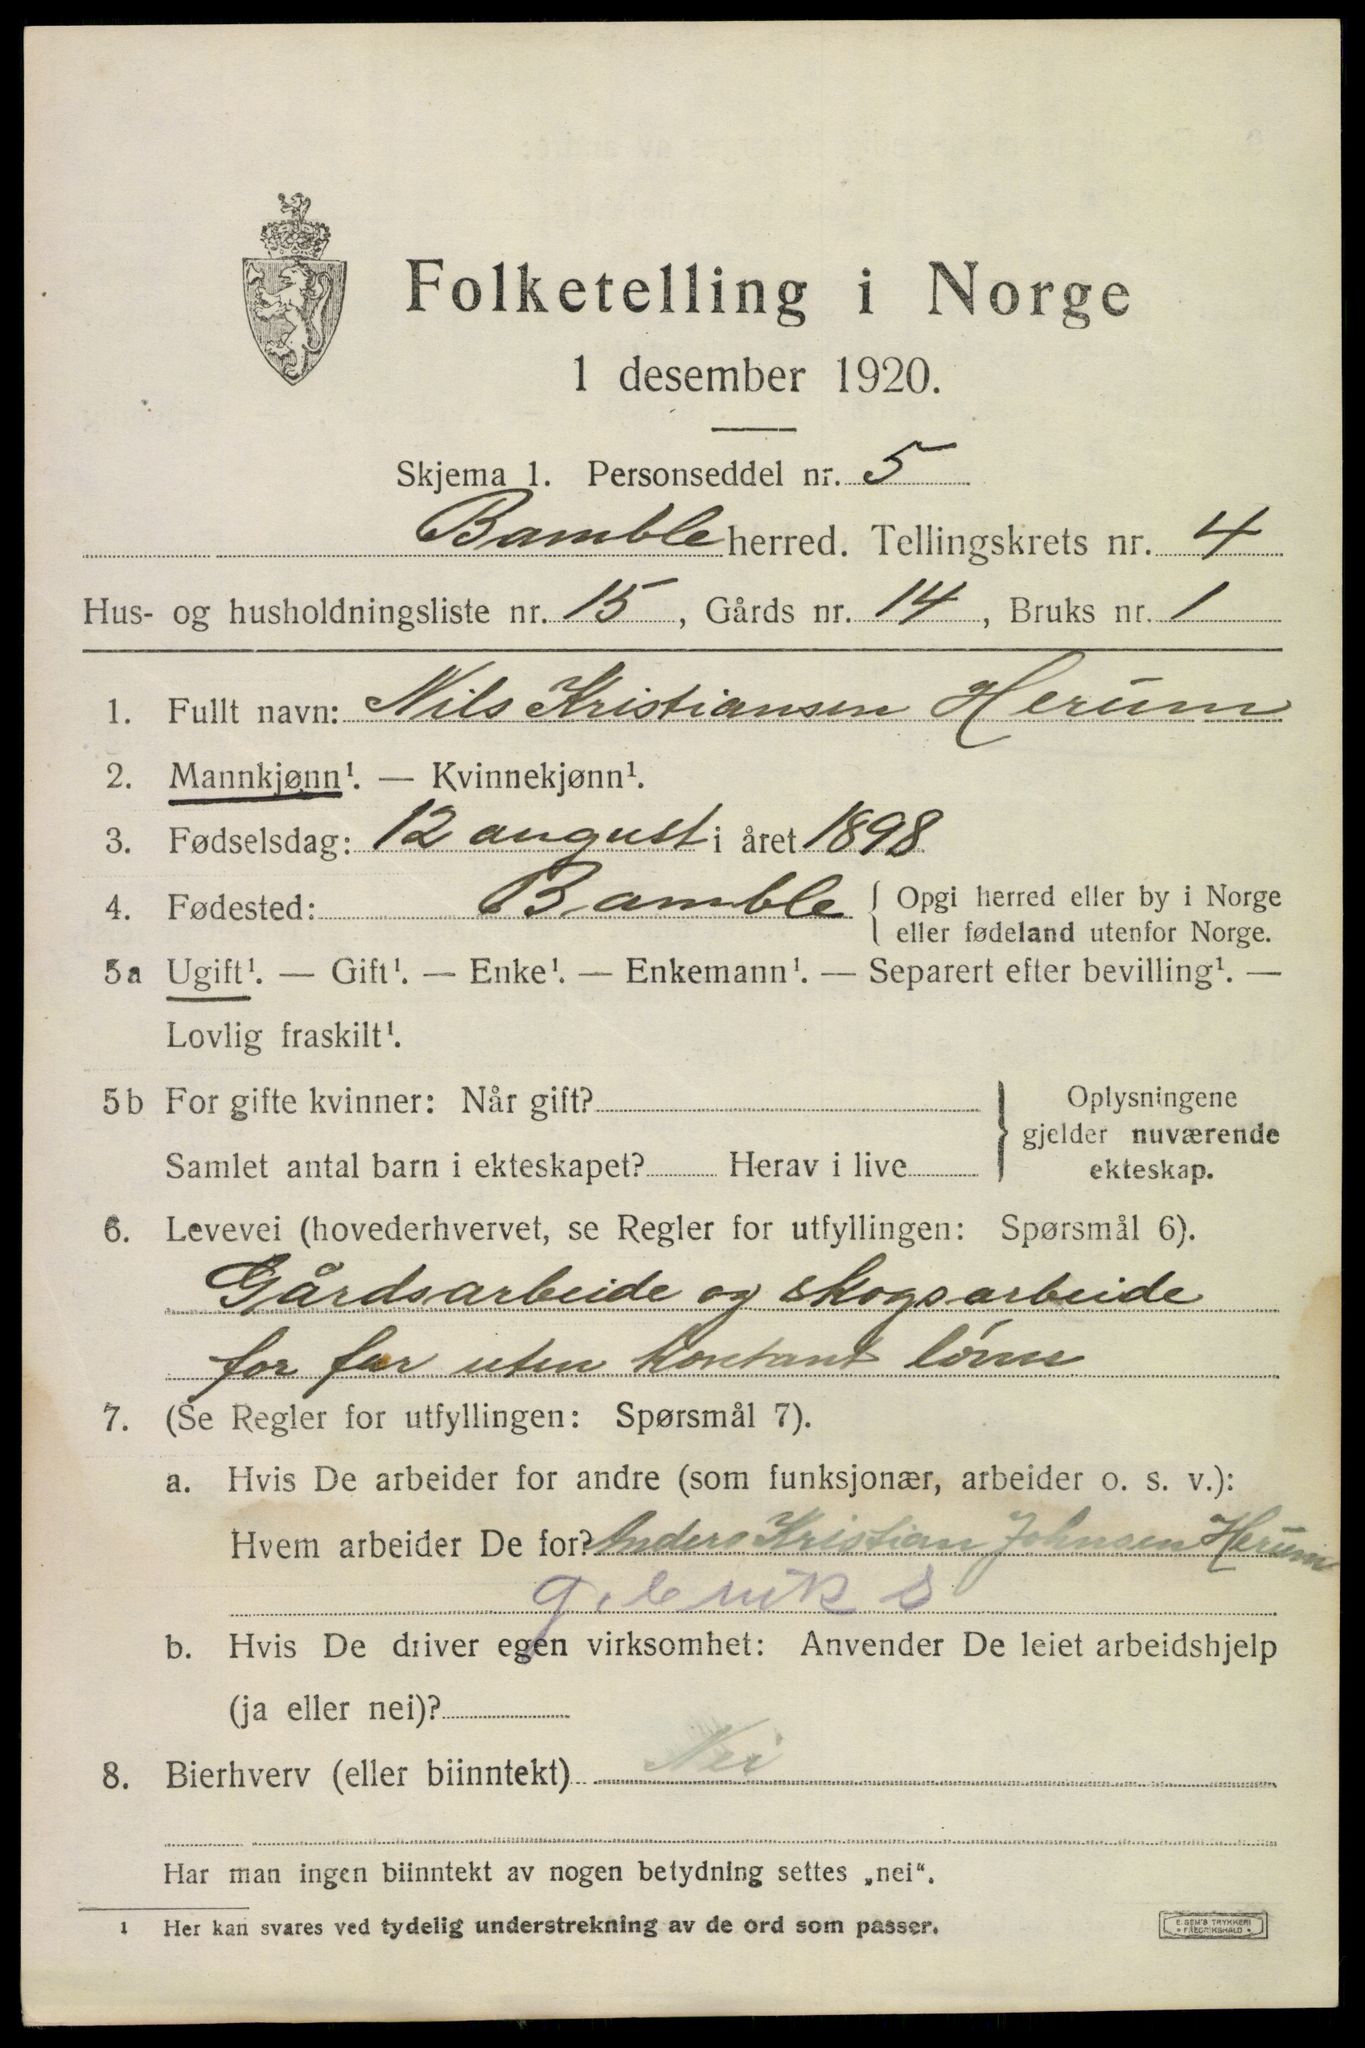 Folketelling i Norge
1 desember 1920.
Skjema 1. Personseddel nr. 5
Bamble herred. Tellingskrets nr. 4
Hus- og husholdningsliste nr. 15, Gårds nr. 14, Bruks nr. 1
1. Fullt navn: Nils Kristiansen Herum
2. Mannkjønn¹. — Kvinnekjønn¹.
3. Fødselsdag: 12 august i året 1898
4. Fødested: Bamble { Opgi herred eller by i Norge
eller fødeland utenfor Norge.
5a Ugift¹. — Gift¹. — Enke¹. — Enkemann¹. — Separert efter bevilling¹. —
Lovlig fraskilt¹.
5b For gifte kvinner: Når gift?
Samlet antal barn i ekteskapet? Herav i live
} Oplysningene
gjelder nuværende
ekteskap.
6. Levevei (hovederhvervet, se Regler for utfyllingen: Spørsmål 6).
Gårdsarbeide og skogsarbeide
for far uten kontant lønn
7. (Se Regler for utfyllingen: Spørsmål 7).
a. Hvis De arbeider for andre (som funksjonær, arbeider o. s. v.):
Hvem arbeider De for? Anders Kristian Johnsen Herum
b. Hvis De driver egen virksomhet: Anvender De leiet arbeidshjelp
(ja eller nei)?
8. Bierhverv (eller biinntekt) Nei
Har man ingen biinntekt av nogen betydning settes „nei“.
¹ Her kan svares ved tydelig understrekning av de ord som passer.
E. SEM'S TRYKKERI
FREDRIKSHALD